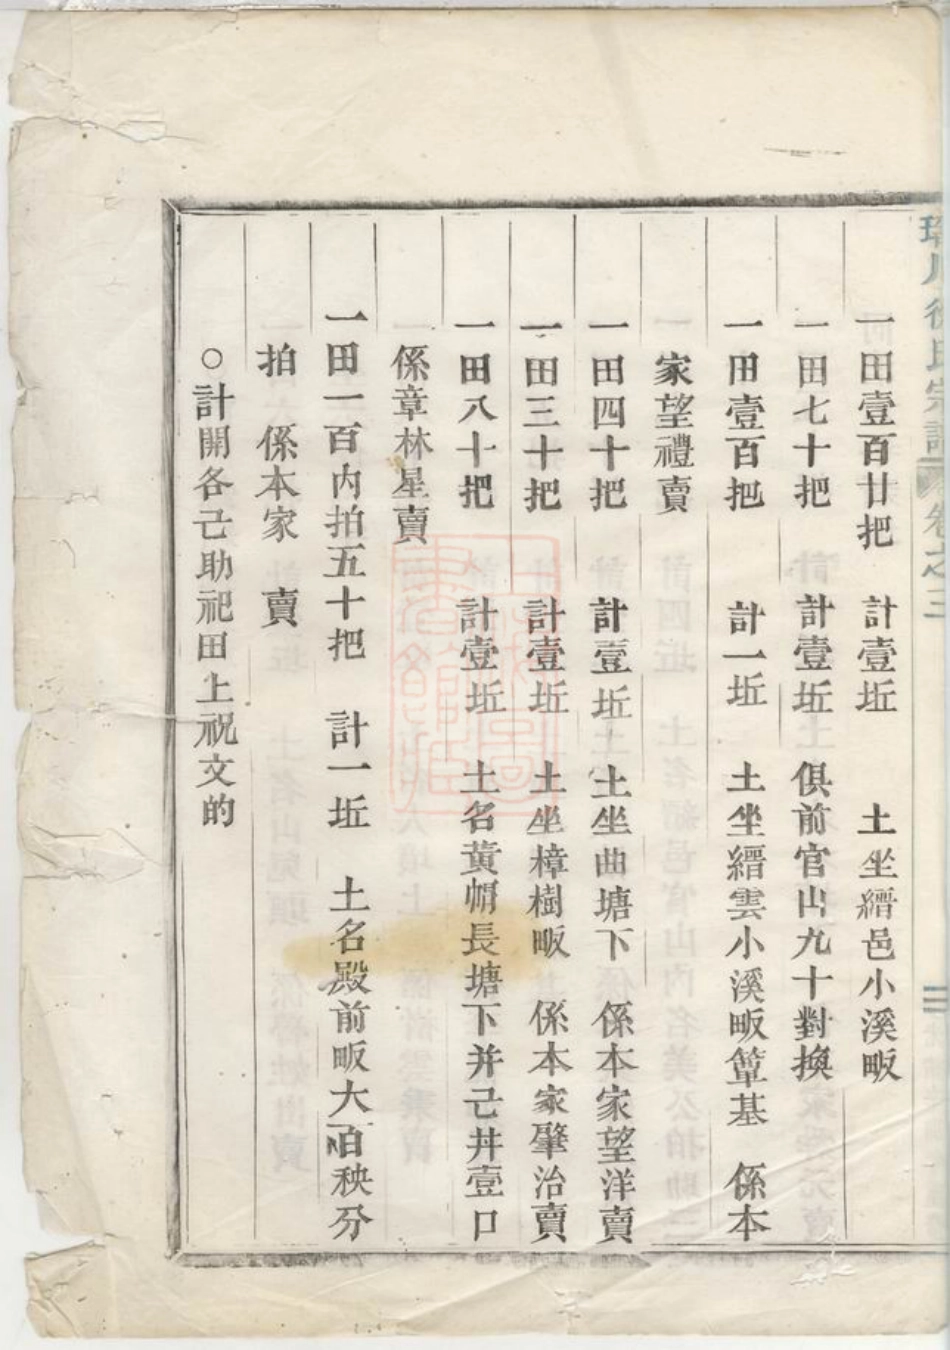 徐氏宗譜 卷之三
一田壹百廿把 計壹坵 土坐縉邑小溪畈
一田七十把 計壹坵 俱前官山九十對換
一田壹百把 計一坵 土坐縉雲小溪畈簟基 係本
家望禮賣
一田四十把 計壹坵 土坐曲塘下 係本家望洋賣
一田三十把 計壹坵 土坐樟樹畈 係本家肇治賣
一田八十把 計壹坵 土名黃㡌長塘下并己井壹口
係章林星賣
一田一百内拍五十把 計一坵 土名殿前畈大百秧分
拍 係本家 賣
○計開各己助祀田上祝文的